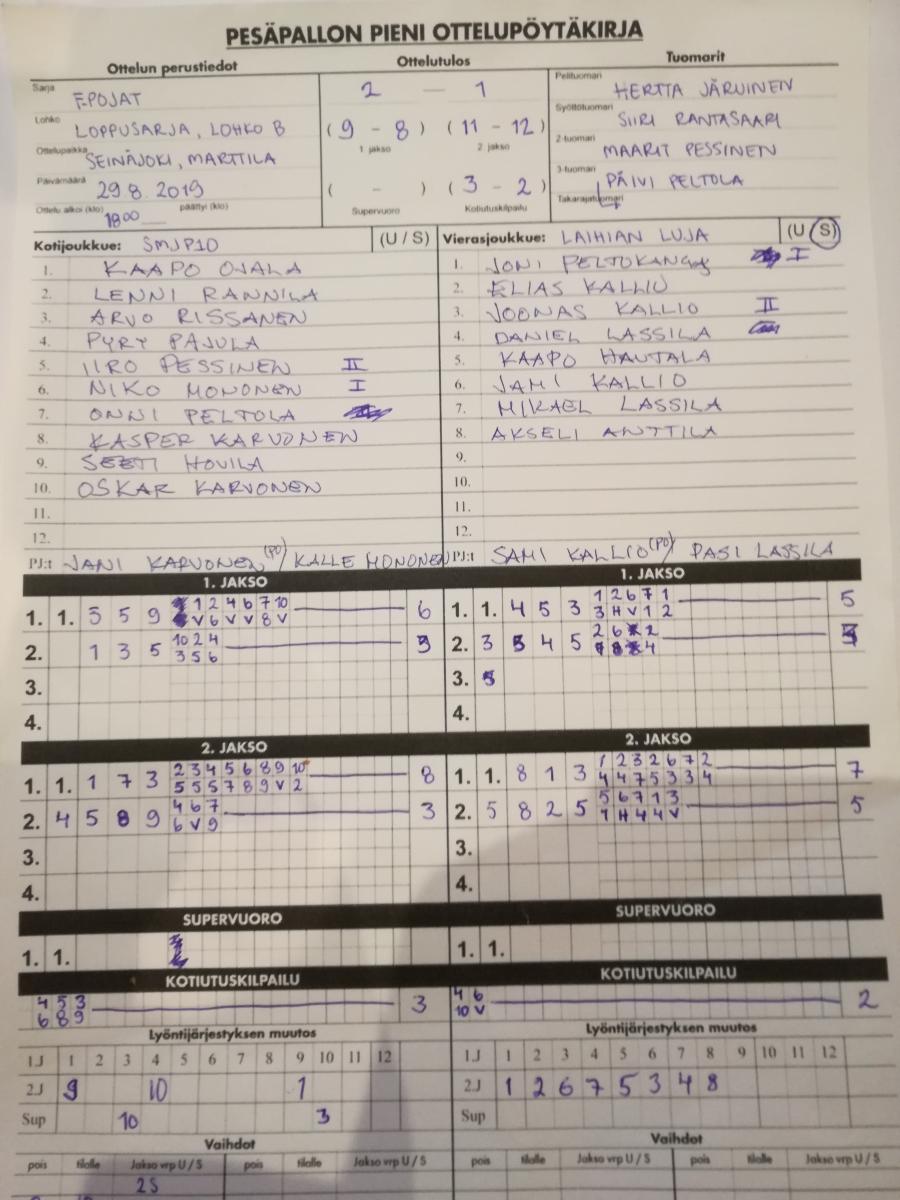 PESÄPALLON PIENI OTTELUPÖYTÄKIRJA
Ottelun perustiedot Ottelutulos Tuomarit
Sarja F-POJAT 2 — 1 Pelituomari HERTTA JÄRVINEN
Lohko LOPPUSARJA, LOHKO B ( 9 - 8 ) ( 11 - 12 ) Syöttötuomari SIIRI RANTASAARI
Ottelupaikka SEINÄJOKI, MARTTILA 1 jakso 2 jakso 2-tuomari MAARIT PESSINEN
Päivämäärä 29.8.2019 ( - ) ( 3 - 2 ) 3-tuomari PÄIVI PELTOLA
Ottelu alkoi (klo) 1800 päättyi (klo) Supervuoro Kotiutuskilpailu Takarajatuomari
Kotijoukkue: SMJP10 (U / S)
1. KAAPO OJALA
2. LENNI RANNILA
3. ARVO RISSANEN
4. PYRY PAJULA
5. IIRO PESSINEN II
6. NIKO MONONEN I
7. ONNI PELTOLA
8. KASPER KARVONEN
9. HOVILA
10. OSKAR KARVONEN
11.
12.
PJ:t JANI KARVONEN (PJ) / KALLE MONONEN
Vierasjoukkue: LAIHIAN LUJA (U S)
1. JONI PELTOKANGAS I
2. ELIAS KALLIO
3. JOONAS KALLIO II
4. DANIEL LASSILA
5. KAAPO HAUTALA
6. JAMI KALLIO
7. MIKAEL LASSILA
8. AKSELI ANTTILA
9.
10.
11.
12.
PJ:t SAMI KALLIO (PJ) / PASI LASSILA
1. JAKSO
1. 1. 5 5 9 1 2 4 6 7 10 6
V 6 V V 8 V
2. 1 3 5 10 2 4 3
3 5 6
3.
4.
1. JAKSO
1. 1. 4 5 3 1 2 6 7 1 5
3 H V 1 2
2. 3 3 4 5 2 6 2
4
3.
4.
2. JAKSO
1. 1. 1 7 3 2 3 4 5 6 8 9 10 8
5 5 5 7 8 9 V 2
2. 4 5 8 9 4 6 7 3
6 V 9
3.
4.
2. JAKSO
1. 1. 8 1 3 1 2 3 2 6 7 2 7
4 4 7 5 3 3 4
2. 5 8 2 5 5 6 7 1 3 5
1 H 4 4 V
3.
4.
SUPERVUORO
1. 1.
SUPERVUORO
1. 1.
KOTIUTUSKILPAILU
4 5 3 3
6 8 9
KOTIUTUSKILPAILU
4 6 2
10 V
Lyöntijärjestyksen muutos
1.J 1 2 3 4 5 6 7 8 9 10 11 12
2.J 9 10 1
Sup 10 3
Lyöntijärjestyksen muutos
1.J 1 2 3 4 5 6 7 8 9 10 11 12
2.J 1 2 6 7 5 3 4 8
Sup
Vaihdot
pois tilalle Jakso vrp U / S pois tilalle Jakso vrp U / S
2S
Vaihdot
pois tilalle Jakso vrp U / S pois tilalle Jakso vrp U / S